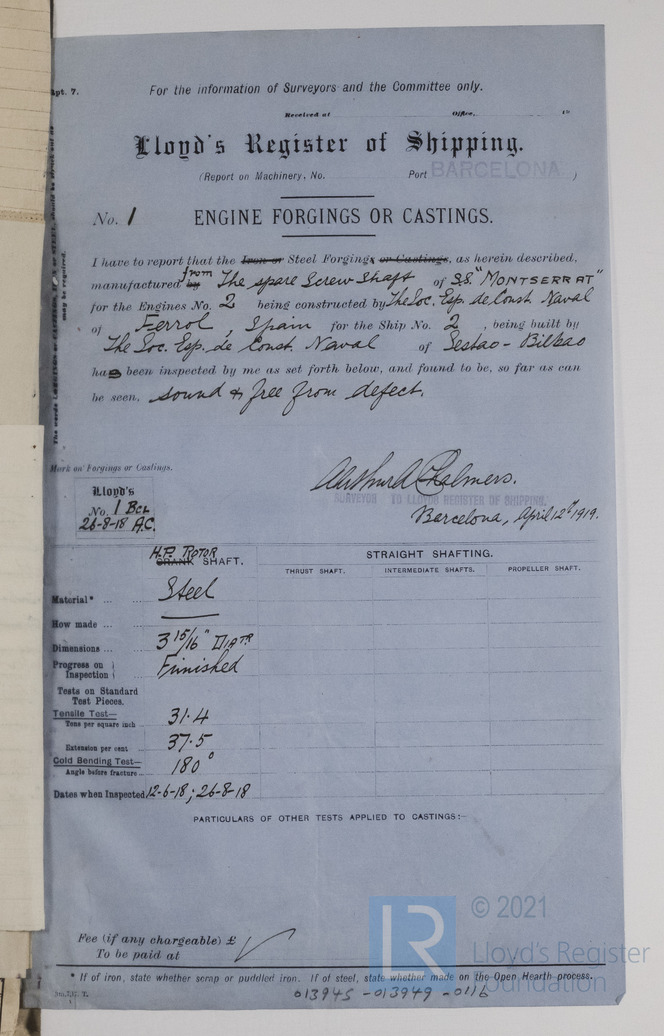 Rpt. 7.
For the information of Surveyors and the Committee only.
Received at Office, 19
Lloyd's Register of Shipping.
(Report on Machinery, No. Port BARCELONA )
No. 1 ENGINE FORGINGS OR CASTINGS.
I have to report that the Iron or Steel Forgings or Castings, as herein described,
manufactured by from The spare Screw Shaft of S.S. "MONTSERRAT"
for the Engines No. 2 being constructed by The Soc. Esp. de Const. Naval
of Ferrol, Spain for the Ship No. 2, being built by
The Soc. Esp. de Const. Naval of Sestao - Bilbao
has been inspected by me as set forth below, and found to be, so far as can
be seen, sound & free from defect.
may be required.
Mark on Forgings or Castings.
Lloyd's
No. 1 BCL
26-8-18 A.C.
Arthur A Chalmers.
SURVEYOR TO LLOYDS REGISTER OF SHIPPING.
Barcelona, April 12th 1919.
H.P. ROTOR
CRANK SHAFT.
STRAIGHT SHAFTING.
THRUST SHAFT. INTERMEDIATE SHAFTS. PROPELLER SHAFT.
Material* ... ... Steel
How made ... ...
Dimensions ... ... 3 15/16" DIATR
Progress on Inspection } Finished
Tests on Standard
Test Pieces.
Tensile Test—
Tons per square inch ... 31.4
Extension per cent 37.5
Cold Bending Test—
Angle before fracture ... 180°
Dates when Inspected 12-6-18; 26-8-18
PARTICULARS OF OTHER TESTS APPLIED TO CASTINGS:—
Fee (if any chargeable) £
To be paid at
* If of iron, state whether scrap or puddled iron. If of steel, state whether made on the Open Hearth process.
013945-013949-0116
LR
© 2021
Lloyd's Register
Foundation